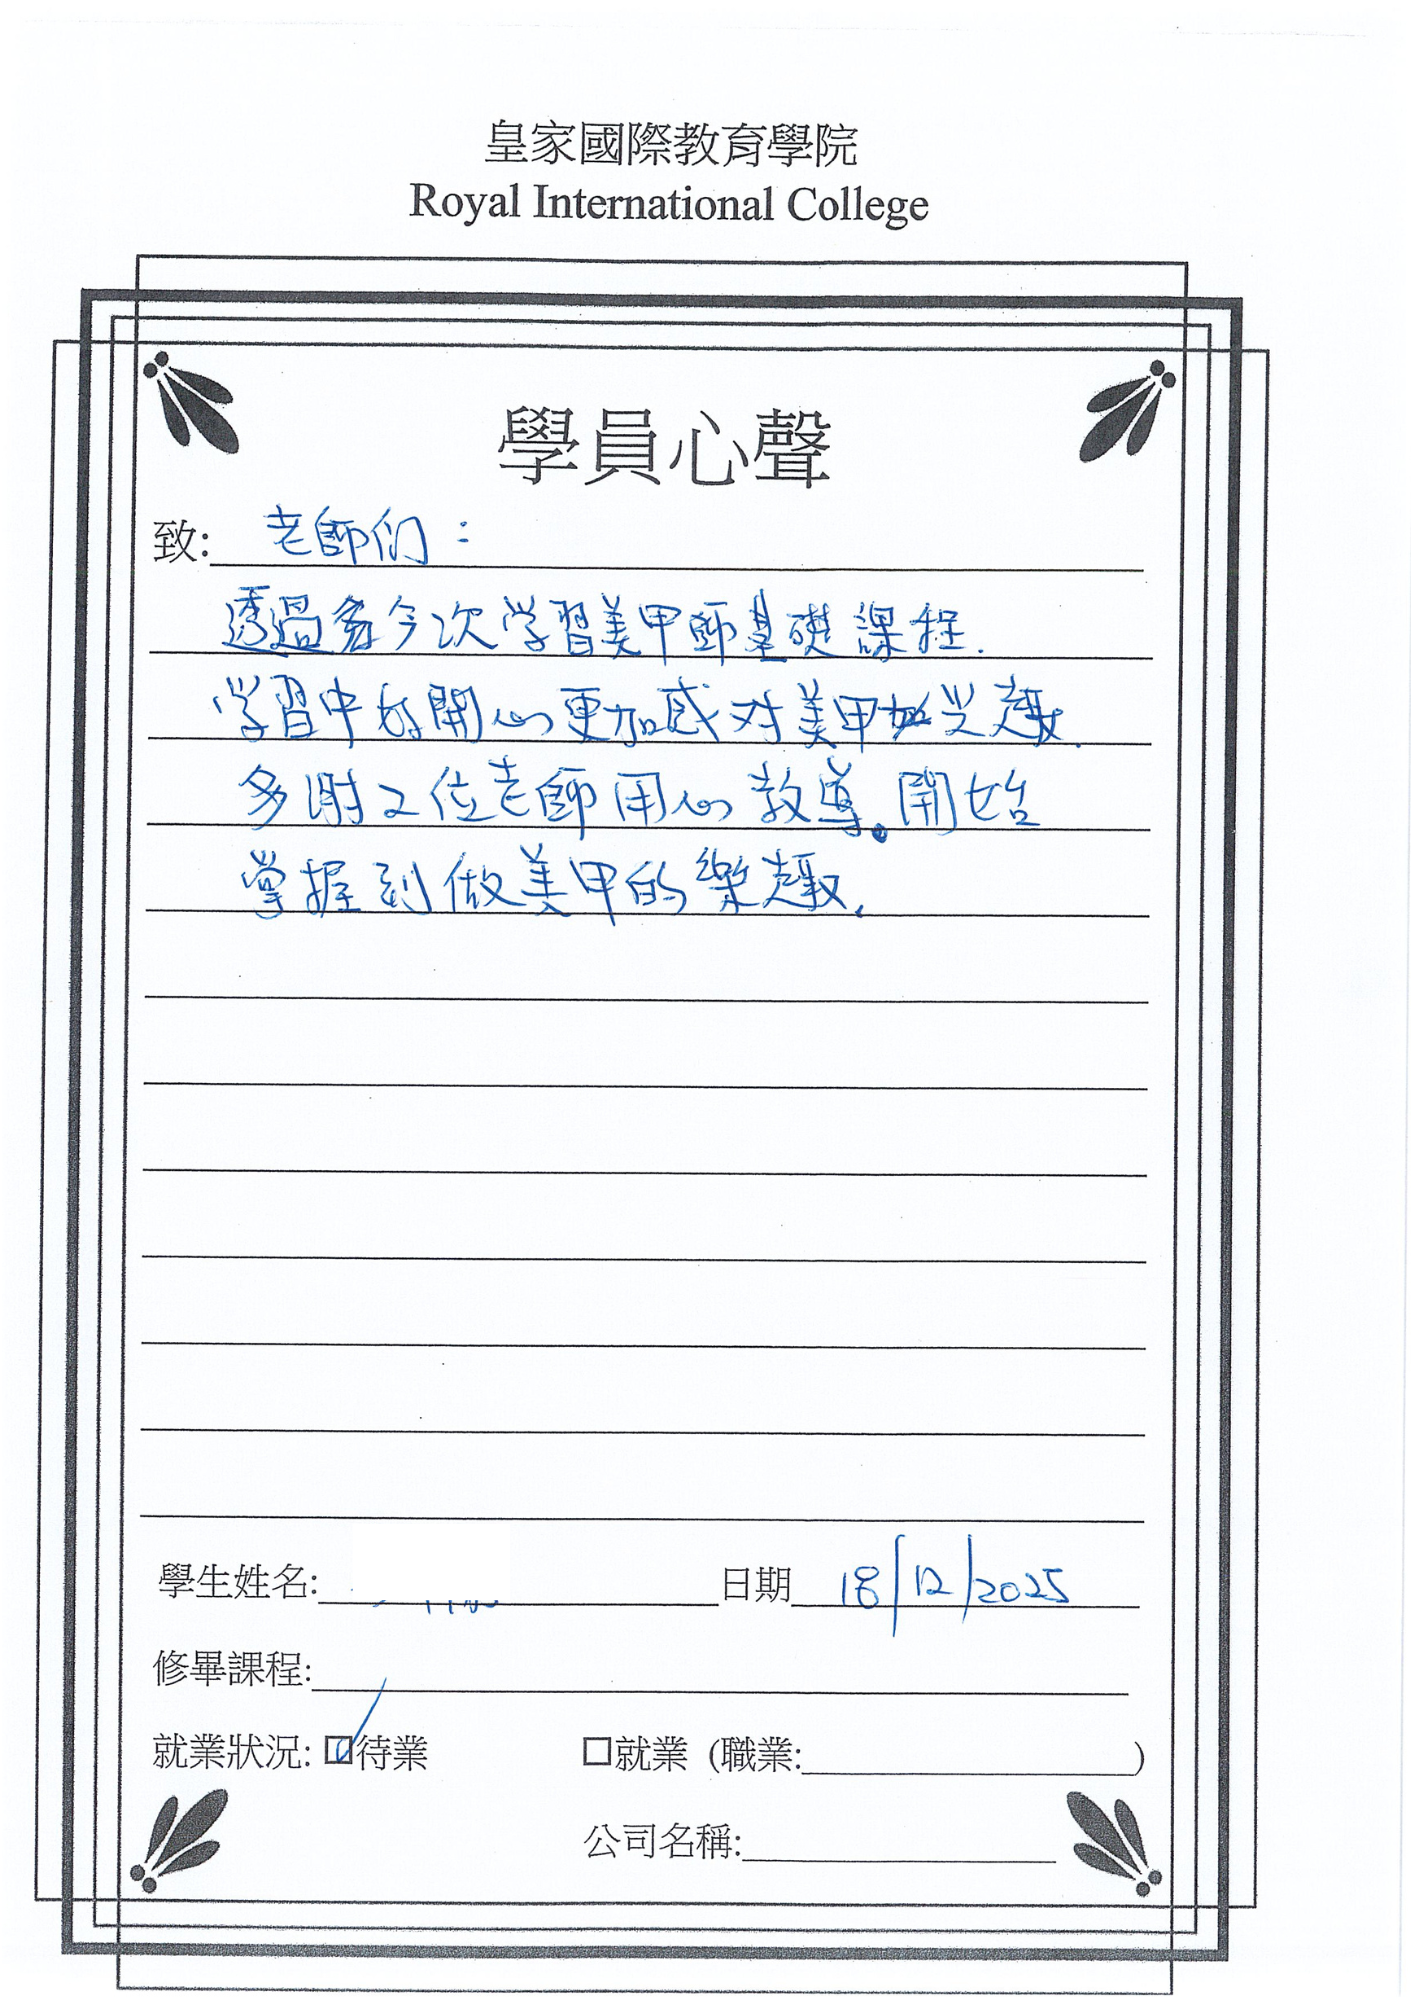 皇家國際教育學院
Royal International College
學員心聲
致: 老師们：
透過今次学習美甲師基礎課程.
学習中的開心更加感对美甲兴趣.
多謝2位老師用心教導。開始
掌握到做美甲的樂趣.
學生姓名: 日期 18/12/2025
修畢課程:
就業狀況: ☑待業 □就業 (職業: )
公司名稱: